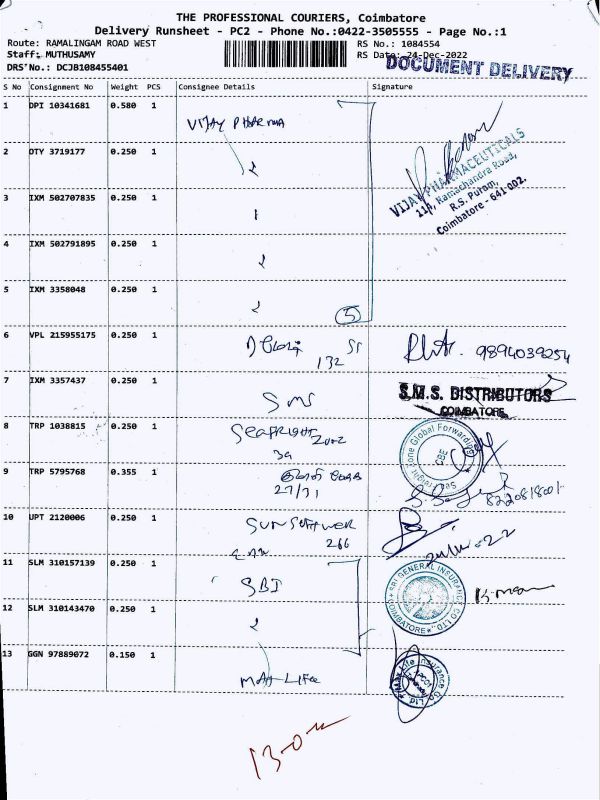 THE PROFESSIONAL COURIERS, Coimbatore
Delivery Runsheet - PC2 - Phone No.:0422-3505555 - Page No.:1
Route: RAMALINGAM ROAD WEST
RS No.: 1084554
Staff: MUTHUSAMY
RS Date: 24-Dec-2022
DRS No.: DCJB108455401
DOCUMENT DELIVERY
S No Consignment No Weight PCS Consignee Details Signature
1 DPI 10341681 0.580 1 VIJAY PHARMA
2 DTY 3719177 0.250 1
VIJAY PHARMACEUTICALS
11A, Ramachandra Road,
R.S. Puram,
Coimbatore - 641 002.
3 IXM 502707835 0.250 1
4 IXM 502791895 0.250 1
5 IXM 3358048 0.250 1
5
6 VPL 215955175 0.250 1
132
9894039254
7 IXM 3357437 0.250 1 SMS
S.M.S. DISTRIBUTORS
COIMBATORE
8 TRP 1038815 0.250 1
Global Forwarding
CBE
9 TRP 5795768 0.355 1
27/31
10 UPT 2120006 0.250 1
266
11 SLM 310157139 0.250 1 SBI
SBI GENERAL INSURANCE CO LTD
COIMBATORE
12 SLM 310143470 0.250 1
13 GGN 97889072 0.150 1
MAX LIFE
Life Insurance Co Ltd